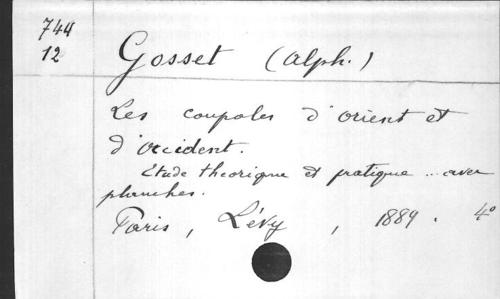 744
12
Gosset (Alph.)
Les coupoles d'orient et
d'occident.
Etude theorique et pratique ... avec
planches.
Paris, Lévy, 1889. 4°